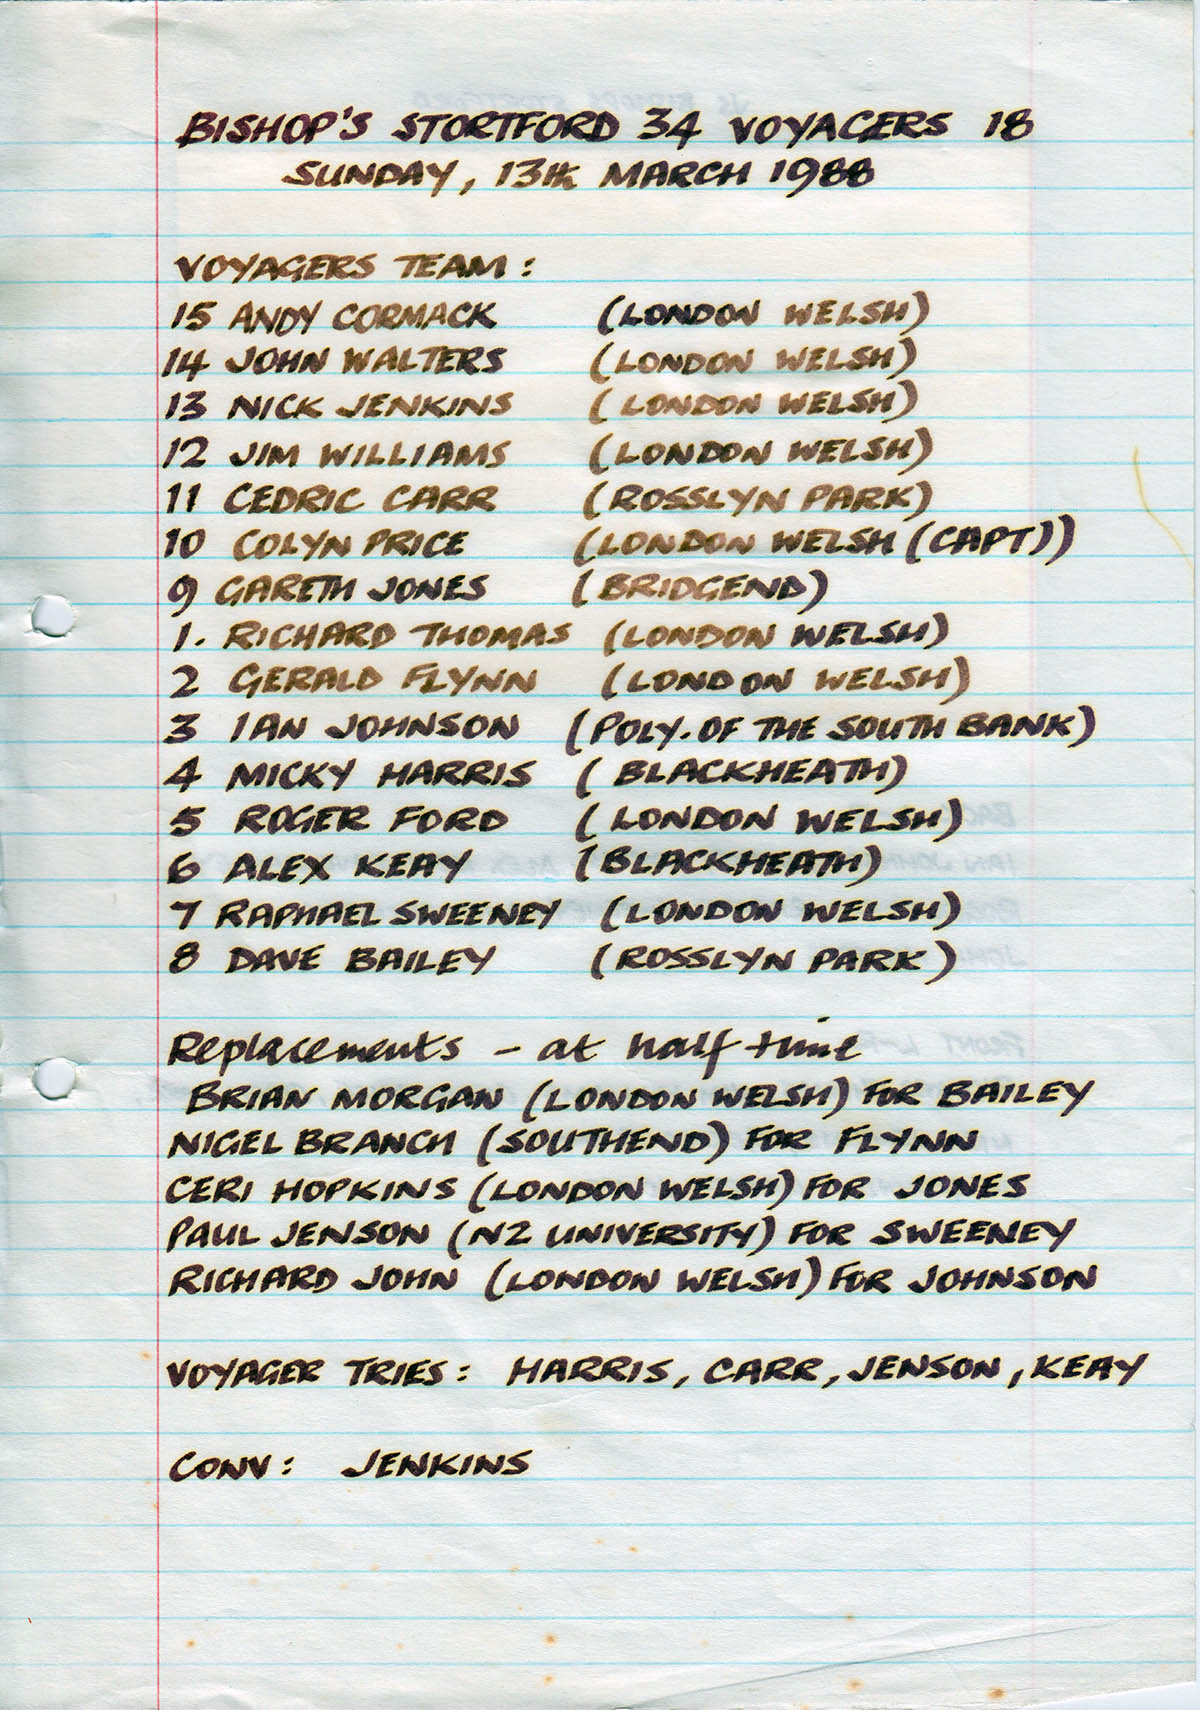 BISHOP'S STORTFORD 34 VOYAGERS 18
SUNDAY, 13th MARCH 1988
VOYAGERS TEAM :
15 ANDY CORMACK (LONDON WELSH)
14 JOHN WALTERS (LONDON WELSH)
13 NICK JENKINS (LONDON WELSH)
12 JIM WILLIAMS (LONDON WELSH)
11 CEDRIC CARR (ROSSLYN PARK)
10 COLYN PRICE (LONDON WELSH (CAPT))
9 GARETH JONES (BRIDGEND)
1. RICHARD THOMAS (LONDON WELSH)
2 GERALD FLYNN (LONDON WELSH)
3 IAN JOHNSON (POLY. OF THE SOUTH BANK)
4 MICKY HARRIS (BLACKHEATH)
5 ROGER FORD (LONDON WELSH)
6 ALEX KEAY (BLACKHEATH)
7 RAPHAEL SWEENEY (LONDON WELSH)
8 DAVE BAILEY (ROSSLYN PARK)
Replacements – at half-time
BRIAN MORGAN (LONDON WELSH) FOR BAILEY
NIGEL BRANCH (SOUTHEND) FOR FLYNN
CERI HOPKINS (LONDON WELSH) FOR JONES
PAUL JENSON (NZ UNIVERSITY) FOR SWEENEY
RICHARD JOHN (LONDON WELSH) FOR JOHNSON
VOYAGER TRIES : HARRIS, CARR, JENSON, KEAY
CONV : JENKINS